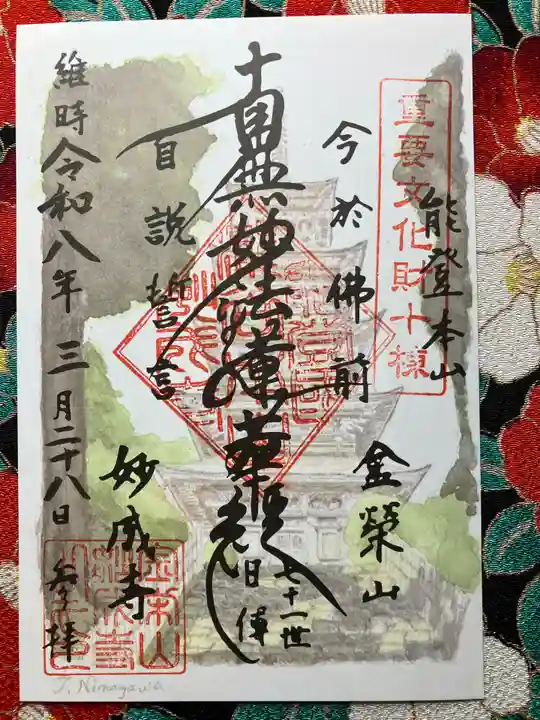 能登本山
重要文化財十棟
金榮山
今於佛前
南無妙法蓮華経
七十一世
日偉
自説誓言
妙成寺
維時令和八年三月二十八日
参拝